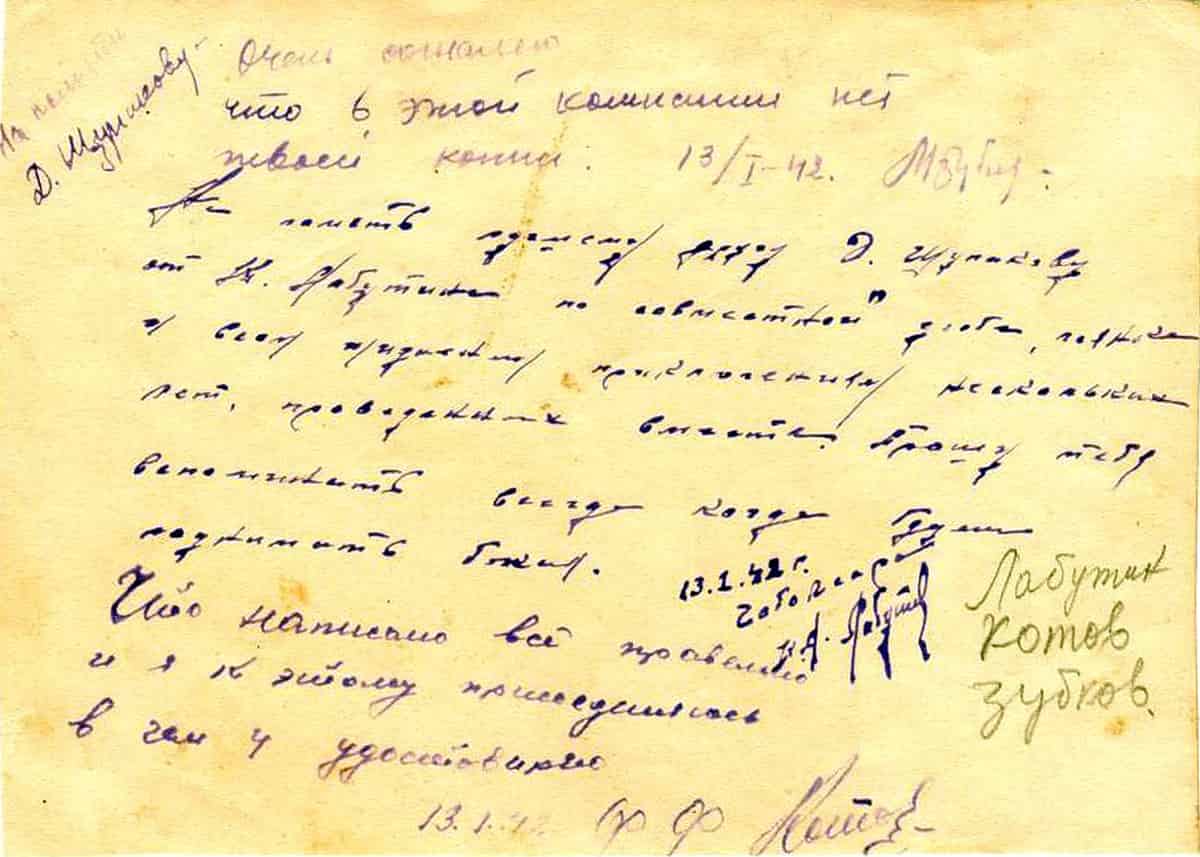 На память
Д. Шурпикову
Очень сожалею
что в этой компании нет
моей копии. 13/I-42. МЗубков
На память другу Д. Шурпикову
от К. Лабутина по совместной учебе, пьянке
и всем приключениям нескольких
лет, проведенных вместе. Прошу тебя
вспоминать всегда когда будешь
поднимать бокал.
13.1.42 г.
К. А. Лабутин
Что написано всё правильно
и я к этому присоединяюсь
в чем и удостоверяю
13.1.42 Котов
Лабутин
Котов
Зубков.